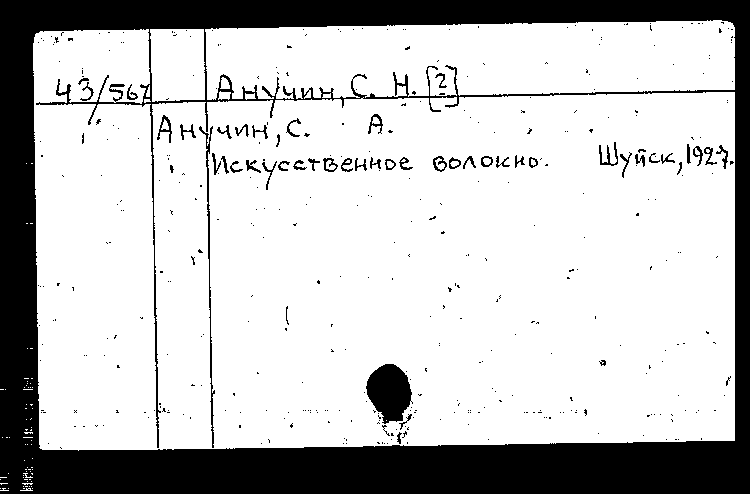 43/567 Анучин, С. Н. [2]
Анучин, С. А.
Искусственное волокно. Шуйск, 1927.